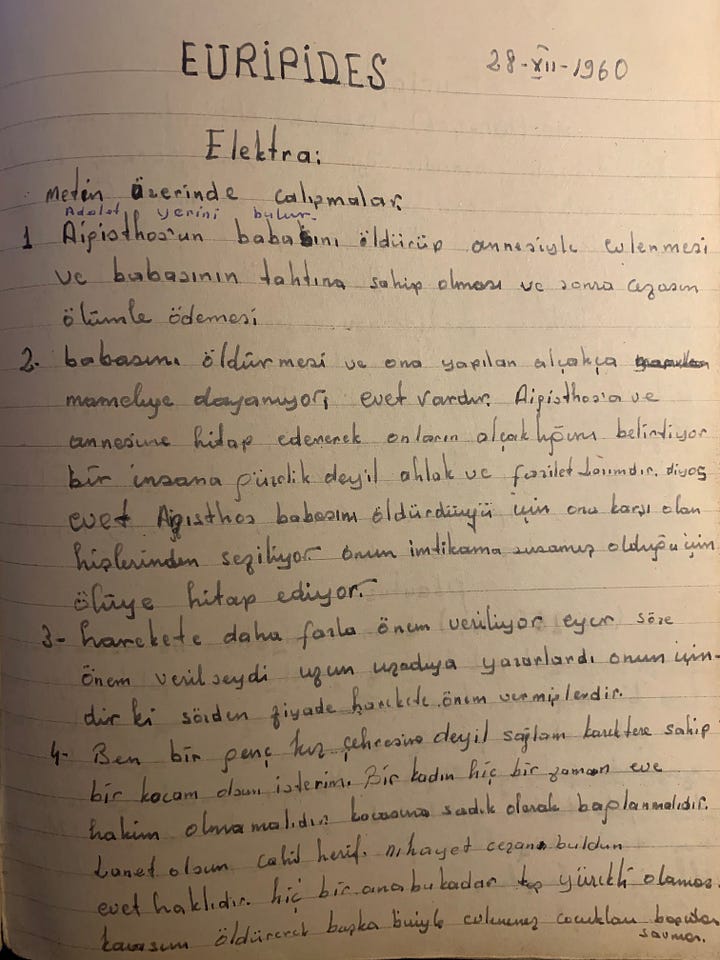 EURİPİDES
28-XII-1960
Elektra:
metin üzerinde çalışmalar.
Adalet yerini bulur.
1 Aipisthos'un babasını öldürüp annesiyle evlenmesi
ve babasının tahtına sahip olması ve sonra cezasın
ölümle ödemesi
2. babasını öldürmesi ve ona yapılan alçakça
mameleye dayanıyor, evet vardır. Aipisthos'a ve
annesine hitap ederek onların alçaklığını belirtiyor
bir insana güzelik deyil ahlak ve fazilet lazımdır. diyor
evet Aigisthos babasını öldürdüyü için ona karşı olan
hislerinden seziliyor. onun intikama susamış olduğu için
ölüye hitap ediyor.
3- harekete daha fazla önem veriliyor eyer söze
önem verilseydi uzun uzadıya yazarlardı onun için-
dir ki sözden ziyade harekete önem vermişlerdir.
4- Ben bir genç kız çehresine deyil sağlam karektere sahip
bir kocam olsun isterim. Bir kadın hiç bir zaman eve
hakim olmamalıdır kocasına sadık olarak bağlanmalıdır.
Lanet olsun cahil herif. nihayet cezanı buldun
evet haklıdır. hiç bir ana bu kadar yürekli olamaz.
kocasını öldürerek başka biriyle evlenmez çocukları başından
savmaz.